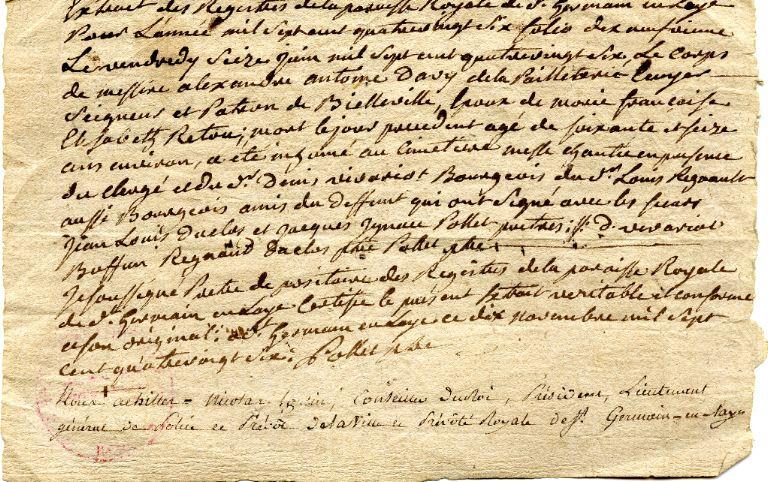 Extrait des Registres de la paroisse Royale de St Germain en Laye
Pour L'année mil sept cent quatrevingt six folio dix neufvieme
Le vendredy seize juin mil sept cent quatrevingt six, Le corps
de messire alexandre antoine Davy de la Pailleterie Ecuyer
Seigneur et Patron de Bielleville, Epoux de marie françoise
Elisabeth Retou; mort le jour precedent agé de soixante et seize
ans environ, a été inhumé au cimetiere messe chantée en presence
du clergé et du Sr. Denis nivarrat Bourgeois du Sr. Louis Regnault
aussi Bourgeois amis du deffunt qui ont signé avec les sieurs
Jean Louis Duclos et Jacques Ignace Pottet pretres; D. nivarrat
Regnaud Duclos ptre Pottet ptre
Je soussigné Pretre depositaire des Registres de la paroisse Royale
de St Germain en Laye Certifie le present Extrait veritable et conforme
a son original: a St Germain en Laye ce dix novembre mil sept
cent quatrevingt six: Pottet ptre
Nous Nicolas Conseiller du Roi, Président, Lieutenant
général de Police et Prévôt de la Ville et Prévôté Royale de St. Germain-en-Laye